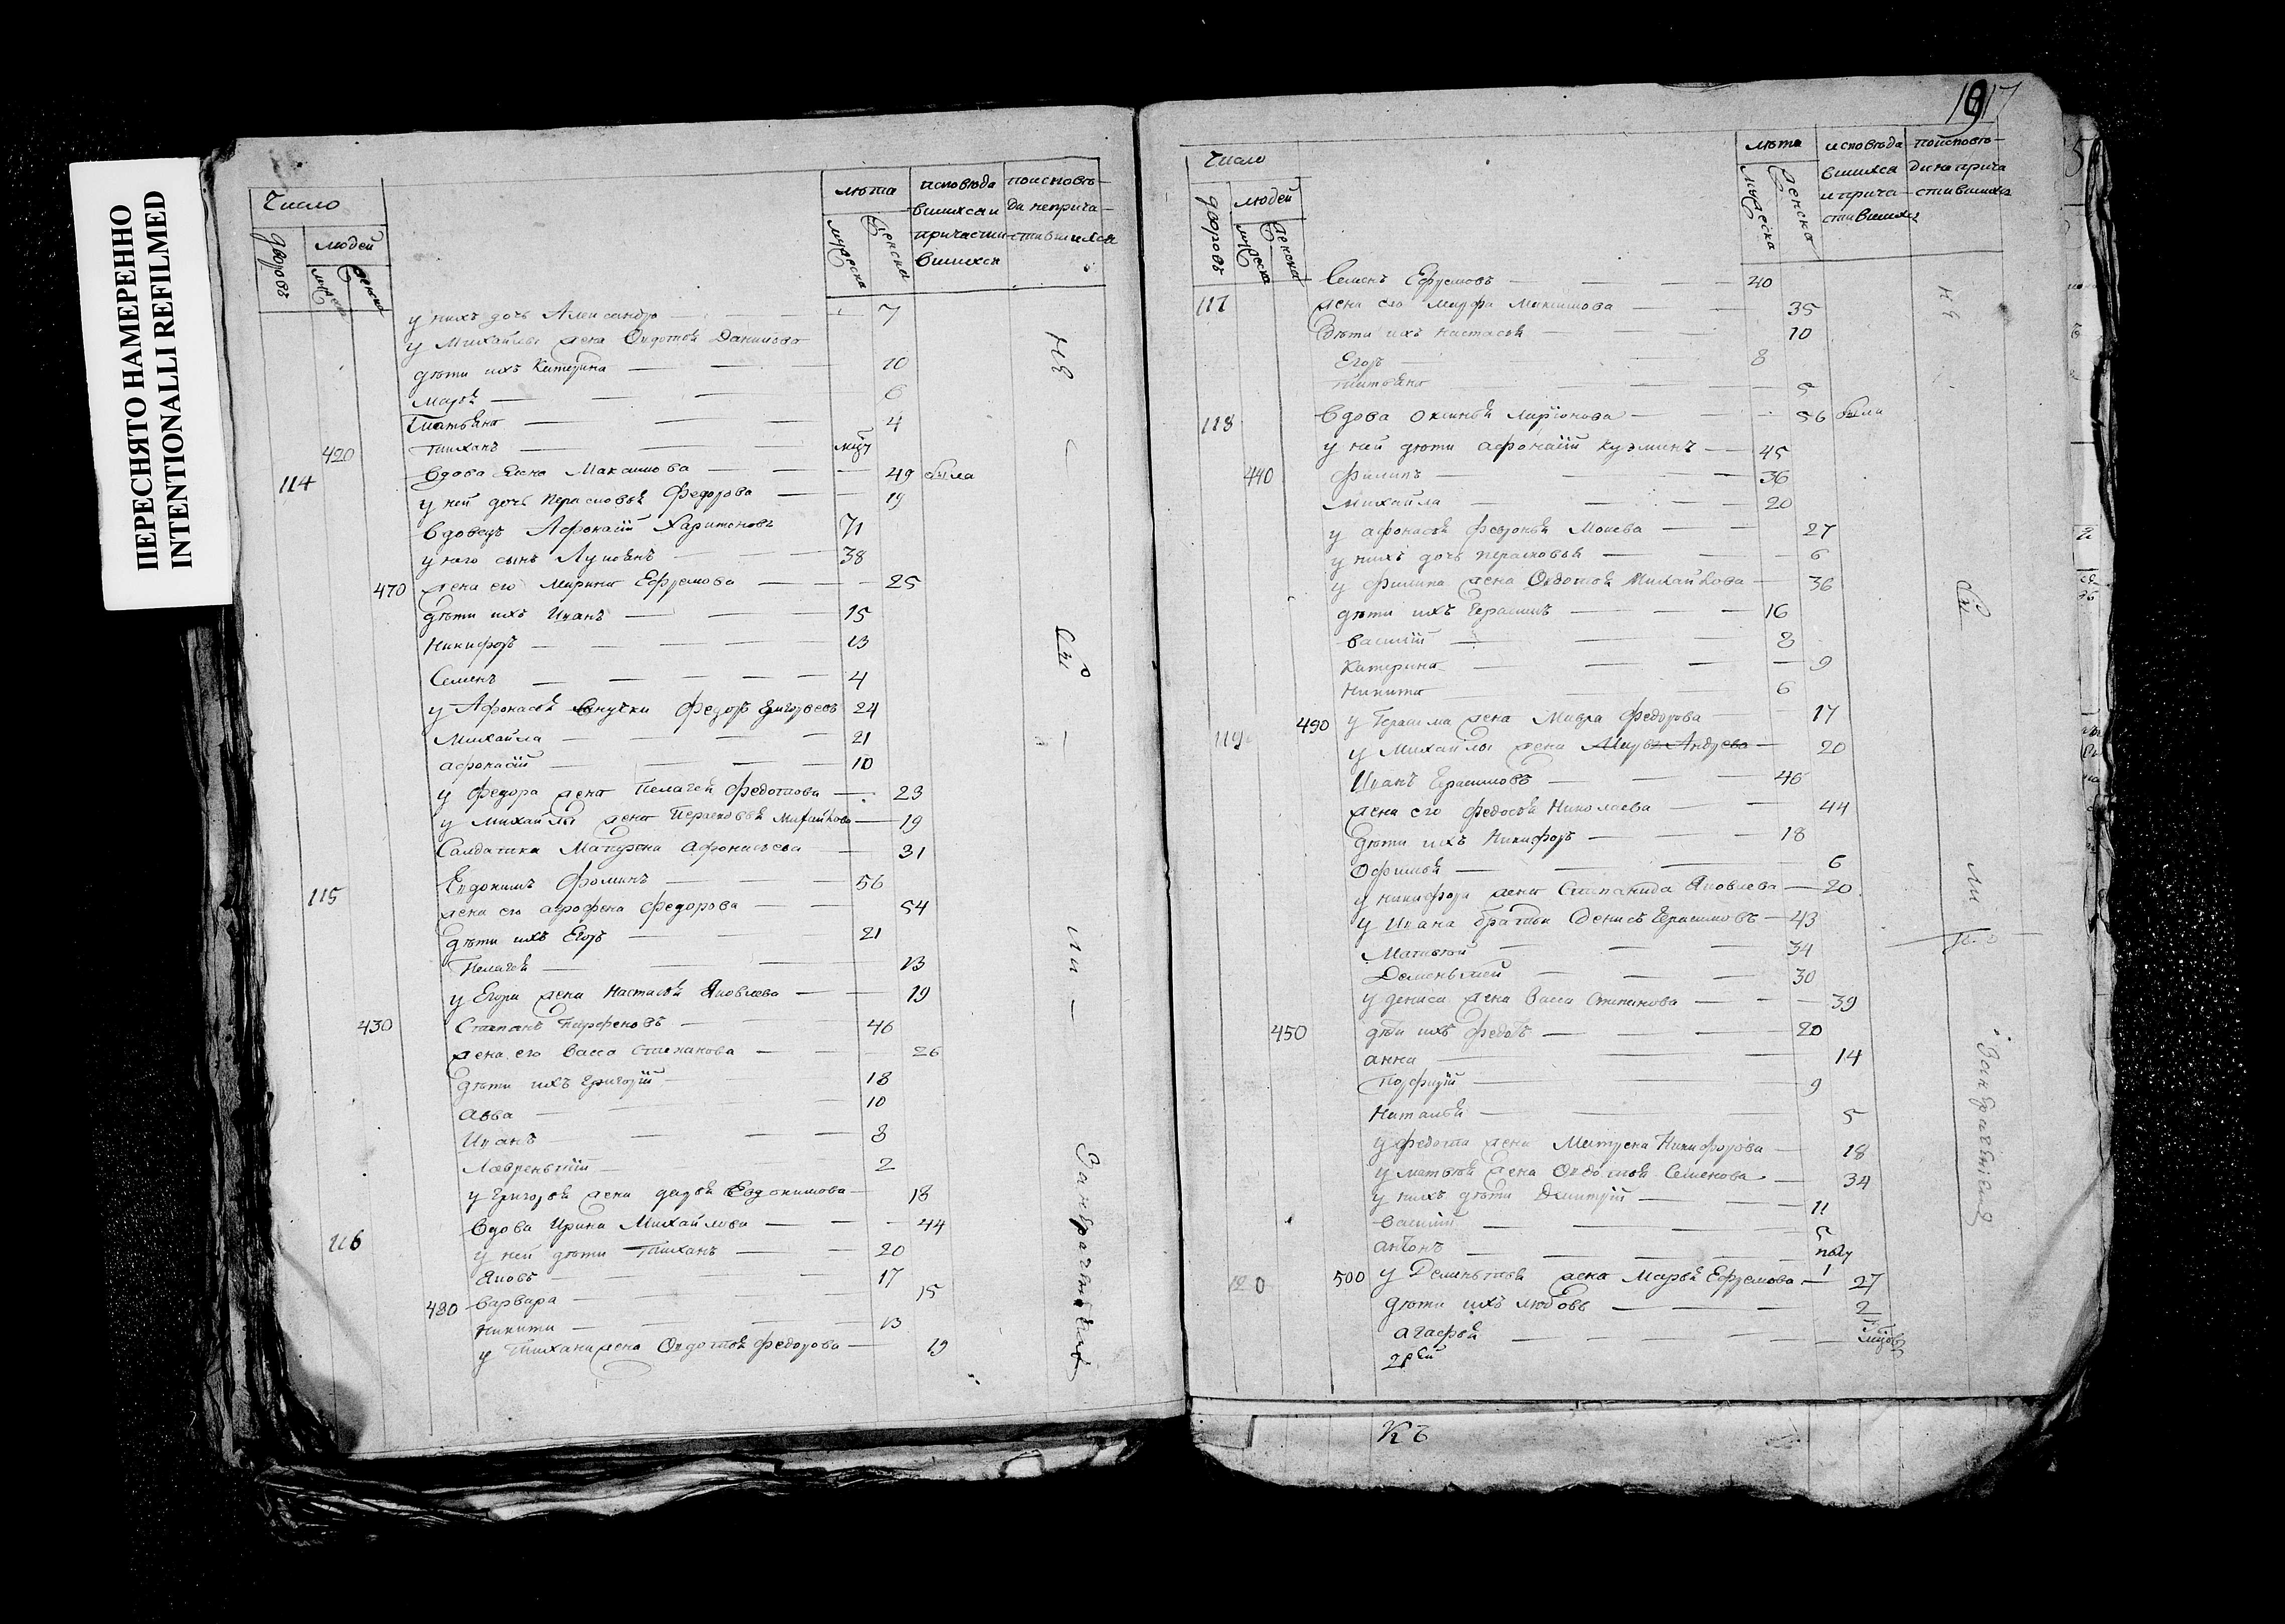 ПЕРЕСНЯТО НАМЕРЕННО
INTENTIONALLI REFILMED
Число
дворовъ
людей
мужеска
женска
лѣта
мужеска
женска
исповѣда
вшихся и
причасти
вшихся
поисповѣ-
да неприча-
стившихся
у нихъ дочь Александра 7
у Михайлы жена Овдотья Данилова
дѣти ихъ Катерина 10
Марья 6
Татьяна 4
420 Тиханъ
114 вдова Анна Максимова 49 была
у ней дочь Перасковья Федорова 19
вдовецъ Афонасій Харитоновъ 71
у него сынъ Лукьянъ 38
470 жена его Марина Ефремова 25
дѣти ихъ Иванъ 15
Никифоръ 13
Семенъ 4
у Афонасья внучки Федоръ Григорьевъ 24
Михайла 21
афонасій 10
у Федора жена Пелагея Федотова 23
у Михайлы жена Перасковья Михайлова 19
Салдатка Матрена Афонасьева 31
115 Евдокимъ Фоминъ 56
жена его агрофена Федорова 54
дѣти ихъ Егоръ 21
Пелагея 13
у Егора жена Настасья Яковлева 19
430 Степанъ Парфеновъ 46
жена его Васса Степанова 26
дѣти ихъ Григорій 18
авва 10
Иванъ 8
Лаврентій 2
у Григорья жена дарья Евдокимова 18
116 вдова Ирина Михайлова 44
у ней дѣти Тиханъ 20
Яковъ 17
480 варвара 15
Никита 13
у Тихана жена Овдотья Федорова 19
не
бы
ли
Занерачением
17
Число
дворовъ
людей
мужеска
женска
лѣта
мужеска
женска
исповѣда
вшихся
и прича-
стившихся
поисповѣ-
ди неприча
стившихся
Семенъ Ефремовъ 40
117 жена его Марфа Максимова 35
дѣти ихъ Настасья 10
Егоръ 8
Татьяна 5
118 вдова Оксинья Ларіонова 56 была
у ней дѣти афонасій Кузминъ 45
440 Филипъ 36
Михайла 20
у афонасья Февронья Моисева 27
у нихъ дочь Перасковья 6
у Филипа жена Овдотья Михайлова 36
дѣти ихъ Герасимъ 16
василій 8
Катерина 9
Никита 6
490 у Герасима жена Мавра Федорова 17
119 у Михайлы жена Марья Андрева 20
Иванъ Герасимовъ 46
жена его Федосья Николаева 44
дѣти ихъ Никифоръ 18
Офимья 6
у Никифора жена Степанида Яковлева 20
у Ивана братья Денисъ Герасимовъ 43
Матвей 34
Дементей 30
у дениса жена Васса Степанова 39
450 дѣти ихъ Федотъ 20
анна 14
Порфирій 9
Наталья 5
у Федота жена Матрена Никифорова 18
у Матвея жена Овдотья Семенова 34
у нихъ дѣти Дмитрій 11
василій 5
антонъ полу
120 500 у Дементья жена Марья Ефремова 27
дѣти ихъ любовь 2
агафья
не
бы
ли
Занерачениемъ
Къ